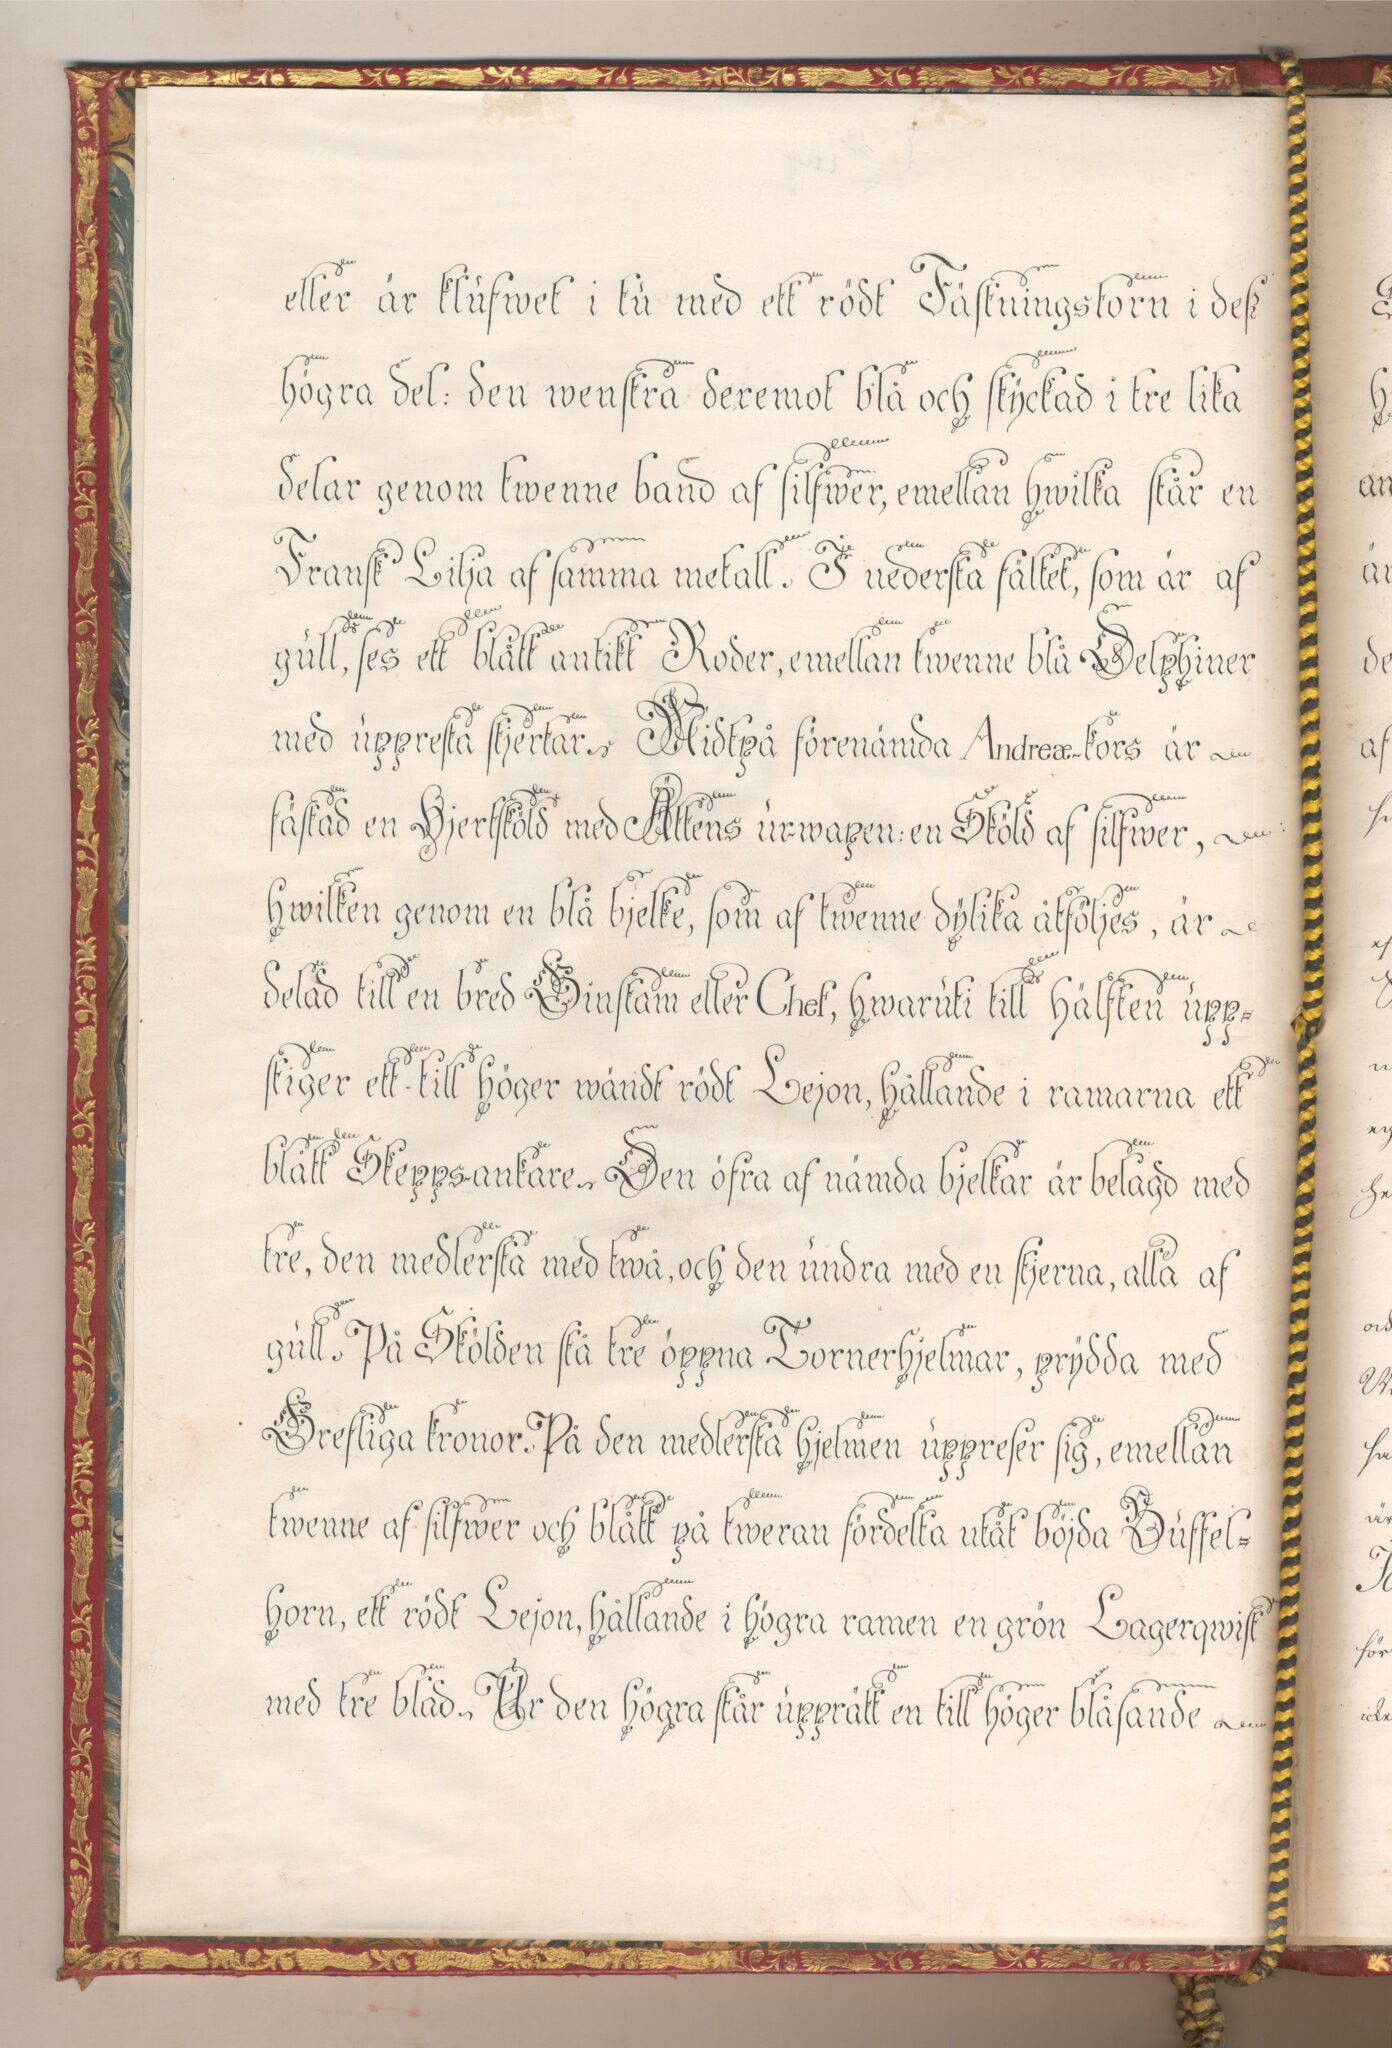 eller är klufwet i tu med ett rödt Fästningstorn i dess
högra del: den wenstra deremot blå och styckad i tre lika
delar genom twenne band af silfwer, emellan hwilka står en
Fransk Lilja af samma metall. I nedersta fältet, som är af
gull, ses ett blått antikt Roder, emellan twenne blå Delphiner
med uppresta stjertar. Midtpå förenämda Andreæ-kors är
fästad en Hjertsköld med Ättens ur-wapen: en Sköld af silfwer,
hwilken genom en blå bjelke, som af twenne dylika åtföljes, är
delad till en bred Ginstam eller Chef, hwaruti till hälften upp-
stiger ett till höger wändt rödt Lejon, hållande i ramarna ett
blått Skepps-ankare. Den öfra af nämda bjelkar är belagd med
tre, den medlersta med twå, och den undra med en stjerna, alla af
gull. På Skölden stå tre öppna Tornerhjelmar, prydda med
Grefliga kronor. På den medlersta hjelmen uppreser sig, emellan
twenne af silfwer och blått på tweran fördelta utåt böjda Buffel-
horn, ett rödt Lejon, hållande i högra ramen en grön Lagerqwist
med tre blad. Ur den högra står upprätt en till höger blåsande